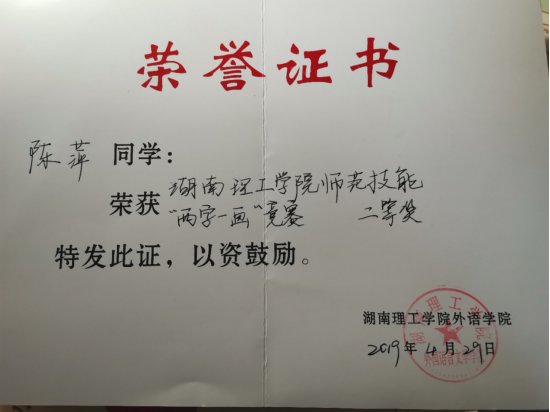 荣誉证书
陈萍 同学：
荣获 湖南理工学院师范技能
“两字一画”竞赛 二等奖
特发此证，以资鼓励。
湖南理工学院外语学院
2019年4月29日